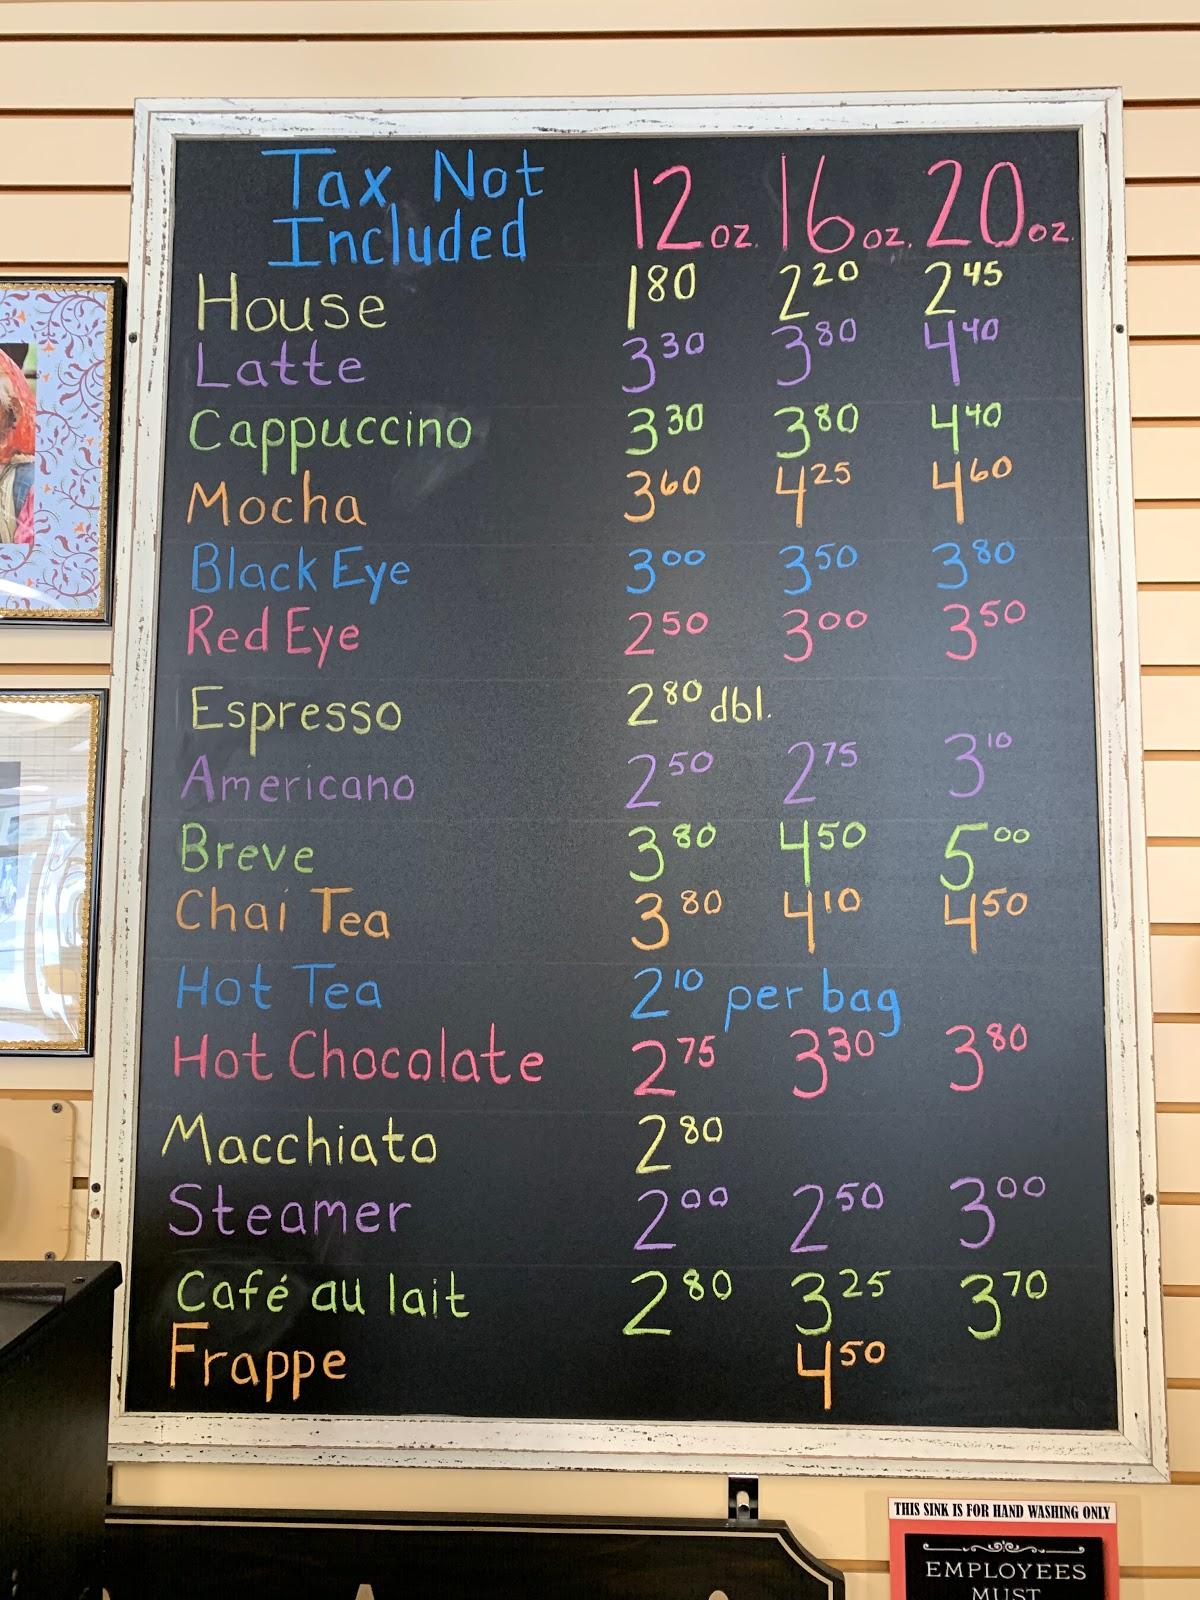 Tax Not
Included 12 oz. 16 oz. 20 oz.
House 1 80 2 20 2 45
Latte 3 30 3 80 4 40
Cappuccino 3 30 3 80 4 40
Mocha 3 60 4 25 4 60
Black Eye 3 00 3 50 3 80
Red Eye 2 50 3 00 3 50
Espresso 2 80 dbl.
Americano 2 50 2 75 3 10
Breve 3 80 4 50 5 00
Chai Tea 3 80 4 10 4 50
Hot Tea 2 10 per bag
Hot Chocolate 2 75 3 30 3 80
Macchiato 2 80
Steamer 2 00 2 50 3 00
Café au lait 2 80 3 25 3 70
Frappe 4 50
THIS SINK IS FOR HAND WASHING ONLY
EMPLOYEES
MUST